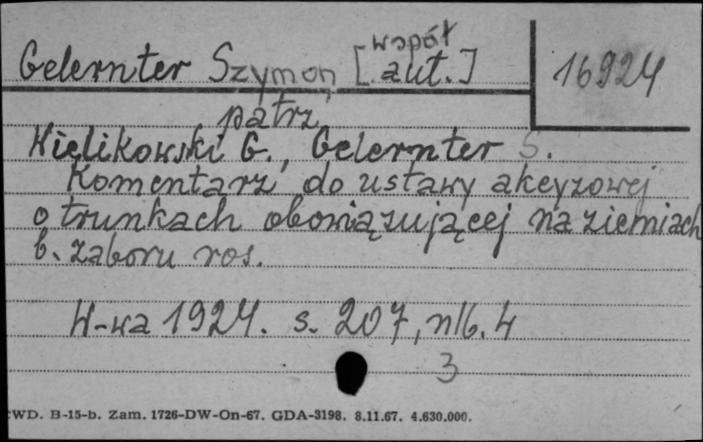 współ
Gelernter Szymon [aut.] 16924
patrz
Wielikowski G., Gelernter S.
Komentarz do ustawy akcyzowej
o trunkach obowiązującej na ziemiach
b. zaboru ros.
W-wa 1924. s. 207, nlb. 4
3
WD. B-15-b. Zam. 1726-DW-On-67. GDA-3198. 8.11.67. 4.630.000.